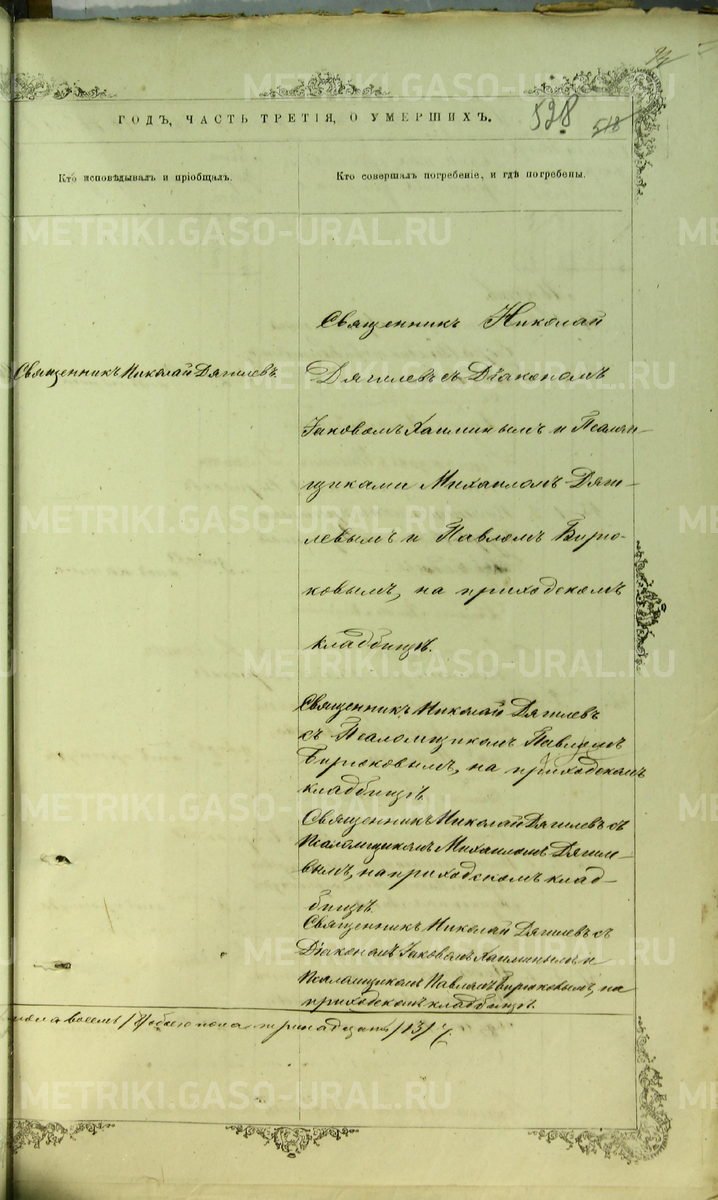 528 518
ГОДЪ, ЧАСТЬ ТРЕТІЯ, О УМЕРШИХЪ.
Кто исповѣдывалъ и пріобщалъ.
Кто совершалъ погребеніе, и гдѣ погребены.
Священникъ Николай Дягилевъ.
Священникъ Николай
Дягилевъ съ Діакономъ
Іаковомъ Хаиминымъ и Псалом-
щиками Михаиломъ Дяги-
левымъ и Павломъ Бирю-
ковымъ, на приходскомъ
кладбищѣ.
Священникъ Николай Дягилевъ
съ Псаломщикомъ Павломъ
Бирюковымъ, на приходскомъ
кладбищѣ.
Священникъ Николай Дягилевъ съ
Псаломщикомъ Михаиломъ Дягиле-
вымъ, на приходскомъ клад-
бищѣ.
Священникъ Николай Дягилевъ съ
Діакономъ Іаковомъ Хаиминымъ и
Псаломщикомъ Павломъ Бирюковымъ, на
приходскомъ кладбищѣ.
пола восемь /8/ обоего пола тринадцать /13/
METRIKI.GASO-URAL.RU